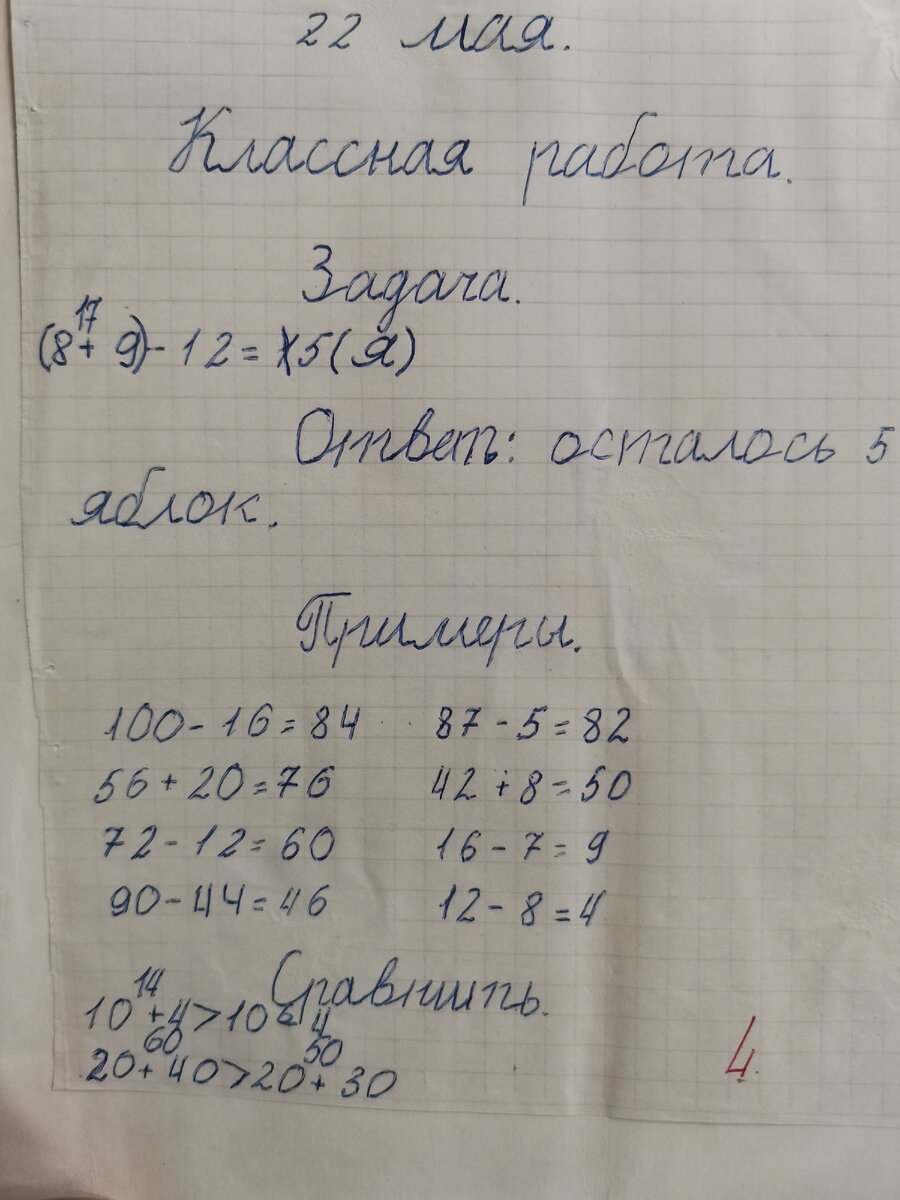 22 мая.
Классная работа.
Задача.
17
(8+ 9)-12= 5(Я)
Ответ: осталось 5
яблок.
Примеры.
100-16=84 87-5=82
56+20=76 42+8=50
72-12=60 16-7=9
90-44=46 12-8=4
Сравнить.
14
10+4>10 4
60 50
20+40>20+30
4